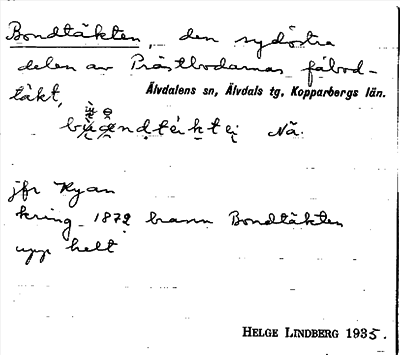 Bondtäkten, den sydöstra
delen av Prästbodarnas fäbod-
täkt,
Älvdalens sn, Älvdals tg, Kopparbergs län.
Nä.
jfr Ryan
kring 1872 brann Bondtäkten
upp helt
HELGE LINDBERG 1935.